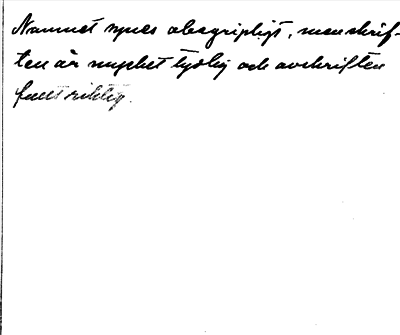 Namnet synes obegripligt, men skrif-
ten är mycket tydlig och avskriften
fullt riktig.